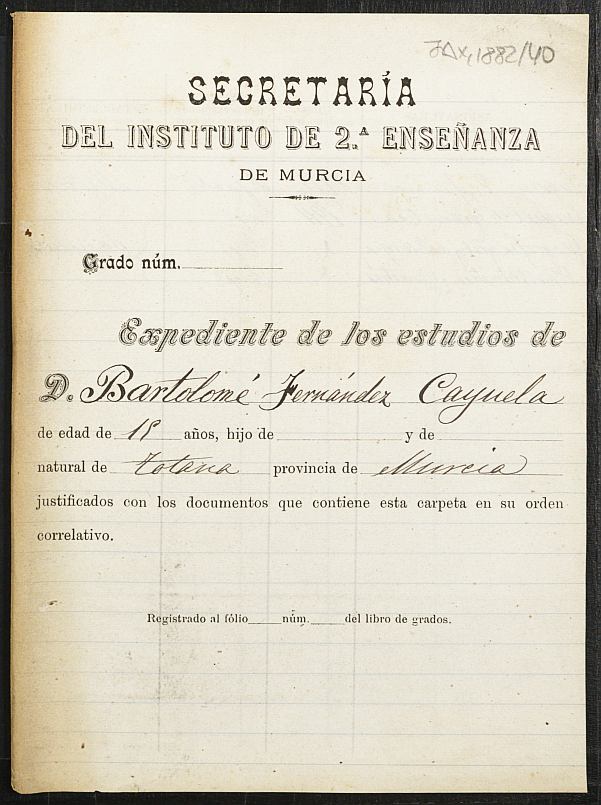 JAX,1882/40
SECRETARÍA
DEL INSTITUTO DE 2.ª ENSEÑANZA
DE MURCIA
Grado núm.
Expediente de los estudios de
D. Bartolomé Fernández Cayuela
de edad de años, hijo de y de
natural de Totana provincia de Murcia
justificados con los documentos que contiene esta carpeta en su orden
correlativo.
Registrado al fólio núm. del libro de grados.